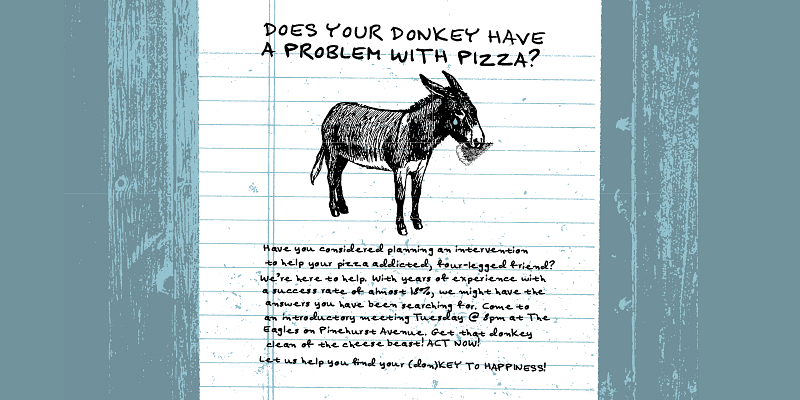 DOES YOUR DONKEY HAVE
A PROBLEM WITH PIZZA?
Have you considered planning an intervention
to help your pizza addicted, four-legged friend?
We're here to help. With years of experience with
a success rate of almost 18%, we might have the
answers you have been searching for. Come to
an introductory meeting Tuesday @ 8pm at The
Eagles on Pinehurst Avenue. Get that donkey
clean of the cheese beast! ACT NOW!
Let us help you find your (don)KEY TO HAPPINESS!